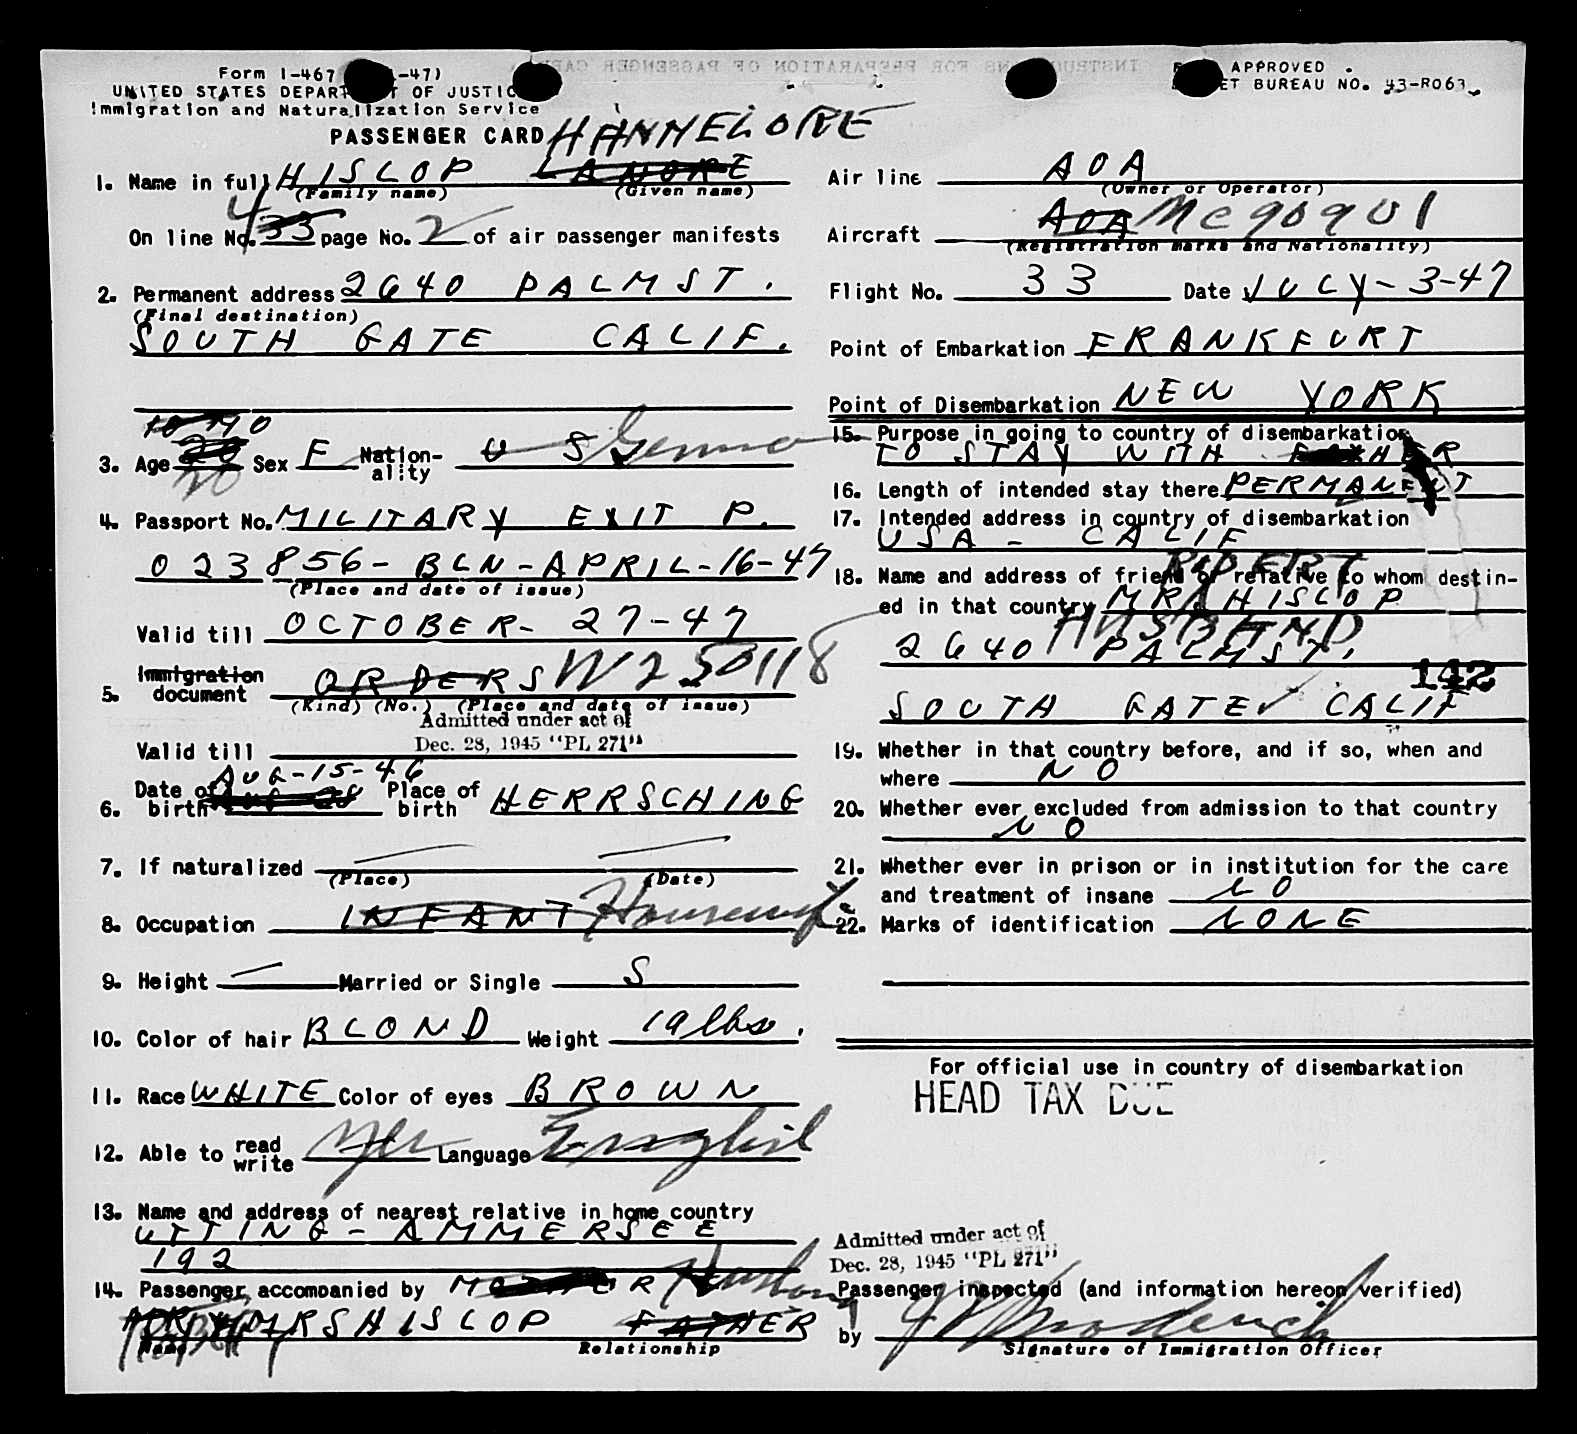 Form I-467 -47)
UNITED STATES DEPARTMENT OF JUSTICE
Immigration and Naturalization Service
PASSENGER CARD
APPROVED .
ET BUREAU NO. 43-R063.
HANNELORE
1. Name in full HISLOP LANORE
(Family name) (Given name)
4
On line No. 33 page No. 2 of air passenger manifests
2. Permanent address 2640 PALM ST.
(Final destination)
SOUTH GATE CALIF.
3. Age 20 Sex F Nation-ality U S German
20
4. Passport No. MILITARY EXIT P.
023856- BLN - APRIL-16-47
(Place and date of issue)
Valid till OCTOBER- 27-47
5. Immigration document ORDERS W250118
(Kind) (No.) (Place and date of issue)
Admitted under act of
Dec. 28, 1945 "PL 271"
Valid till
AUG-15-46
6. Date of birth Place of birth HERRSCHING
7. If naturalized
(Place) (Date)
8. Occupation INFANT Housewife
9. Height Married or Single S
10. Color of hair BLOND Weight 19 lbs.
11. Race WHITE Color of eyes BROWN
12. Able to read write Yes Language English
13. Name and address of nearest relative in home country
UTTING - AMMERSEE
192
14. Passenger accompanied by MOTHER Husband
MRS HISLOP FATHER
Name Relationship
Air line AOA
(Owner or Operator)
Aircraft AOA NC90901
(Registration marks and Nationality)
Flight No. 33 Date JULY-3-47
Point of Embarkation FRANKFURT
Point of Disembarkation NEW YORK
15. Purpose in going to country of disembarkation
TO STAY WITH FATHER
16. Length of intended stay there PERMANENT
17. Intended address in country of disembarkation
USA - CALIF
ROBERT
18. Name and address of friend or relative to whom destin-
ed in that country MR HISLOP
HUSBAND
2640 PALM ST.
142
SOUTH GATE CALIF
19. Whether in that country before, and if so, when and
where NO
20. Whether ever excluded from admission to that country
NO
21. Whether ever in prison or in institution for the care
and treatment of insane NO
22. Marks of identification NONE
For official use in country of disembarkation
HEAD TAX DUE
Admitted under act of
Dec. 28, 1945 "PL 271"
Passenger inspected (and information hereon verified)
by
Signature of Immigration Officer